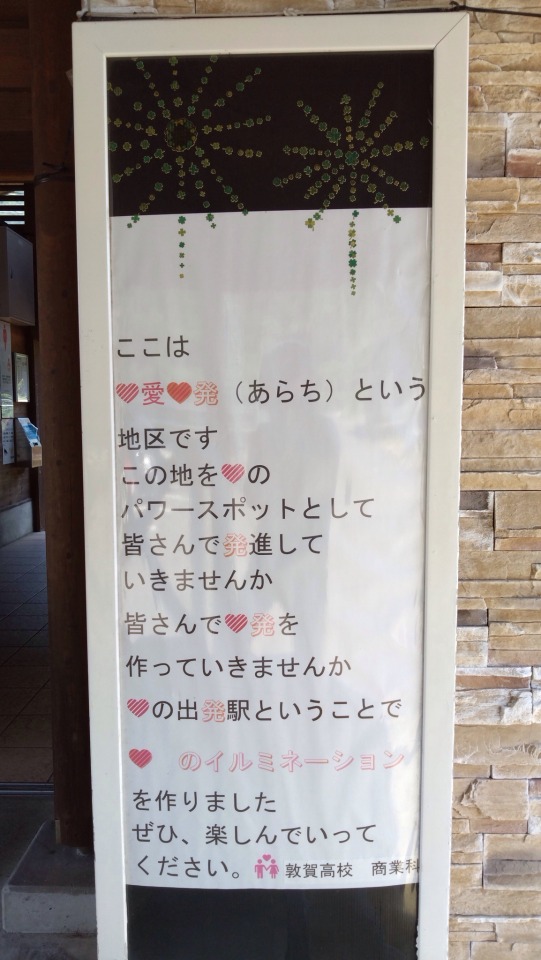 ここは
♥愛♥発（あらち）という
地区です
この地を♥の
パワースポットとして
皆さんで発進して
いきませんか
皆さんで♥発を
作っていきませんか
♥の出発駅ということで
♥　のイルミネーション
を作りました
ぜひ、楽しんでいって
ください。 敦賀高校　商業科